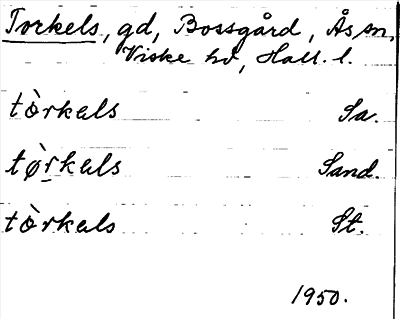 Torkels, gd, Bossgård, Ås sn,
Viske hd, Hall. l.
tòrkals Sa.
tø̀rkals Sand.
tòrkals St.
1950.